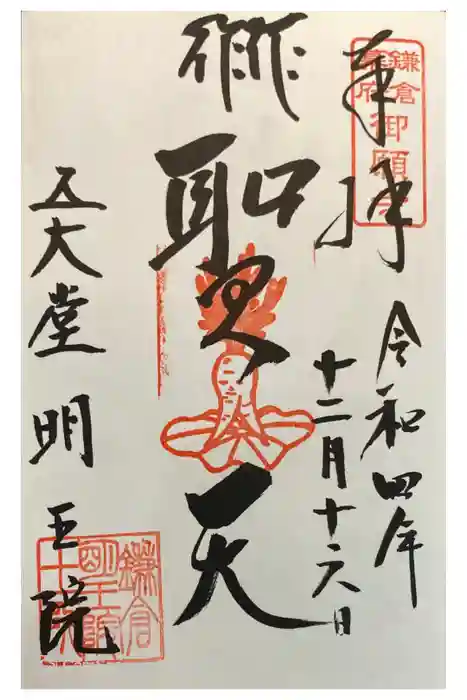 鎌倉
幕府
御願寺
奉拝
令和四年
十二月十六日
聖天
五大堂 明王院
鎌倉
明王院